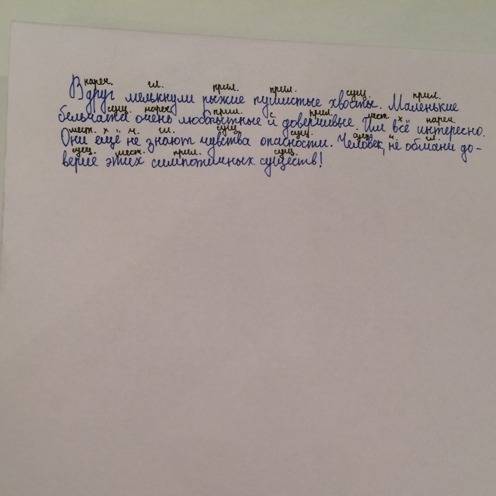 нареч. гл. прил. прил. сущ. прил.
Вдруг мелькнули рыжие пушистые хвосты. Маленькие
сущ. нареч. прил. с прил. мест. х нареч.
бельчата очень любопытные и доверчивые. Им всё интересно.
мест. х ч. гл. сущ. сущ. сущ. ч гл.
Они ещё не знают чувства опасности. Человек, не обмани до-
сущ. мест. прил. сущ.
верие этих симпотичных существ!